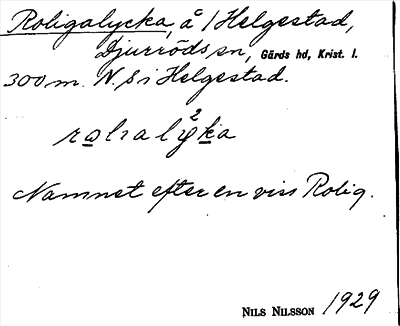 Roligalycka, å 1 Helgestad,
Djurröds sn, Gärds hd, Krist. l.
300 m. N. § i Helgestad.
Namnet efter en viss Rolig.
NILS NILSSON 1929